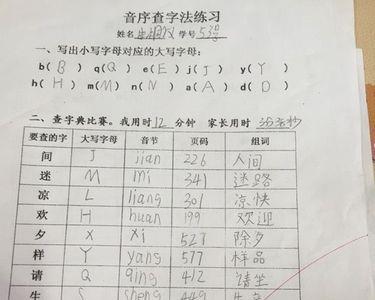 音序查字法练习
姓名 学号 53号
一、写出小写字母对应的大写字母：
b( B ) q( Q ) e( E ) j( J ) y( Y )
h( H ) m( M ) n( N ) a( A ) d( D )
二、查字典比赛。我用时12分钟 家长用时
要查的字 大写字母 音节 页码 组词
间 J jian 226 人间
迷 M mi 341 迷路
凉 L liang 301 凉快
欢 H huan 199 欢迎
夕 X xi 527 除夕
样 Y yang 577 样品
请 Q qing 412 请坐
生 S sheng 449